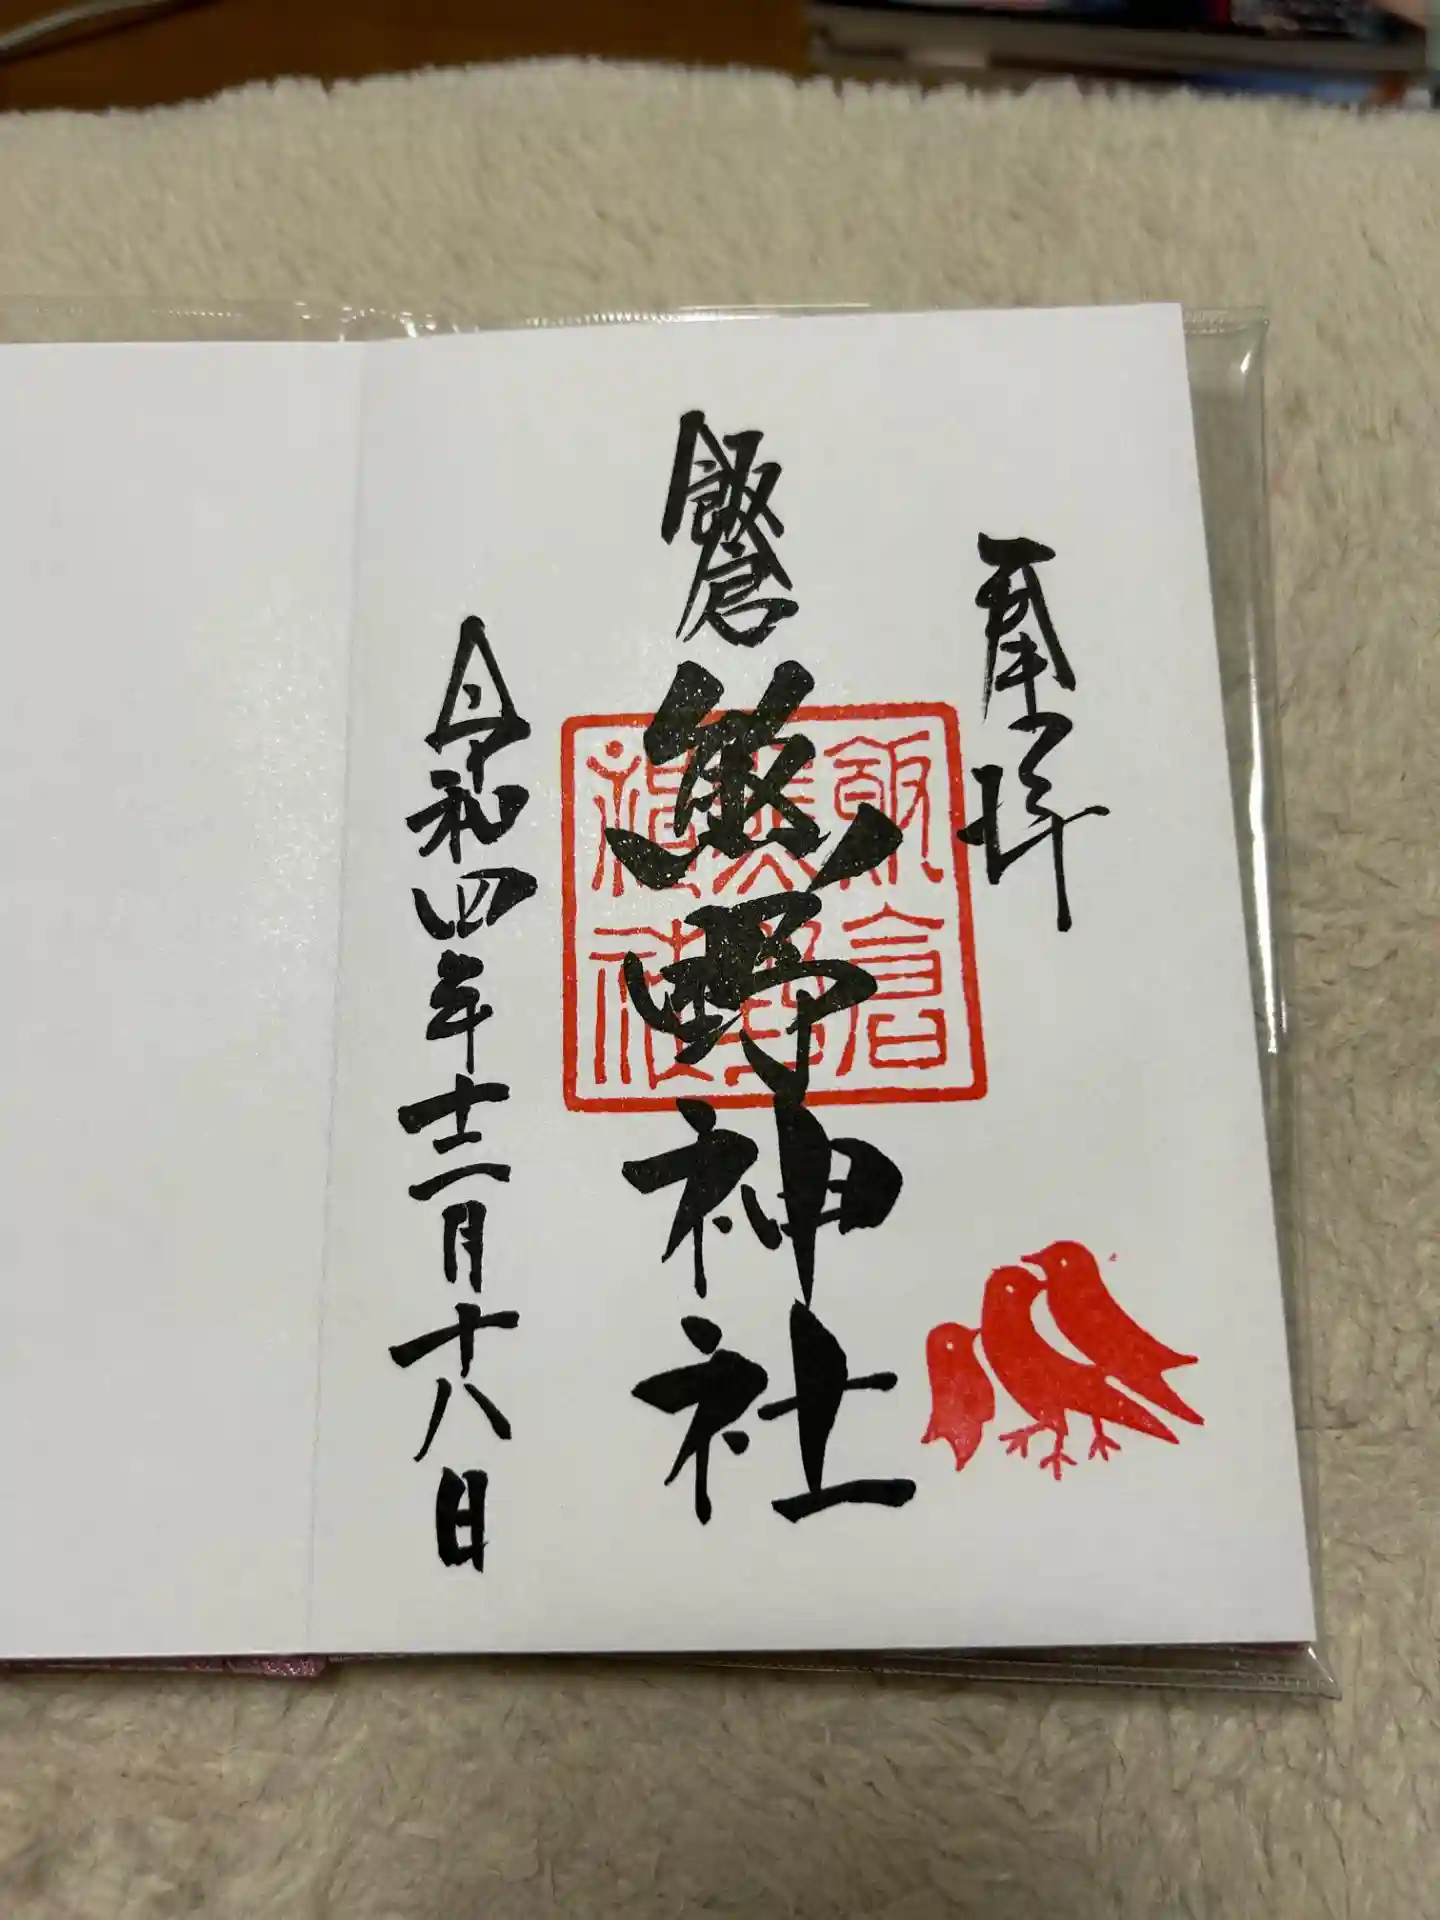 奉拝
飯倉
熊野神社
飯倉熊野神社
令和四年十二月十八日